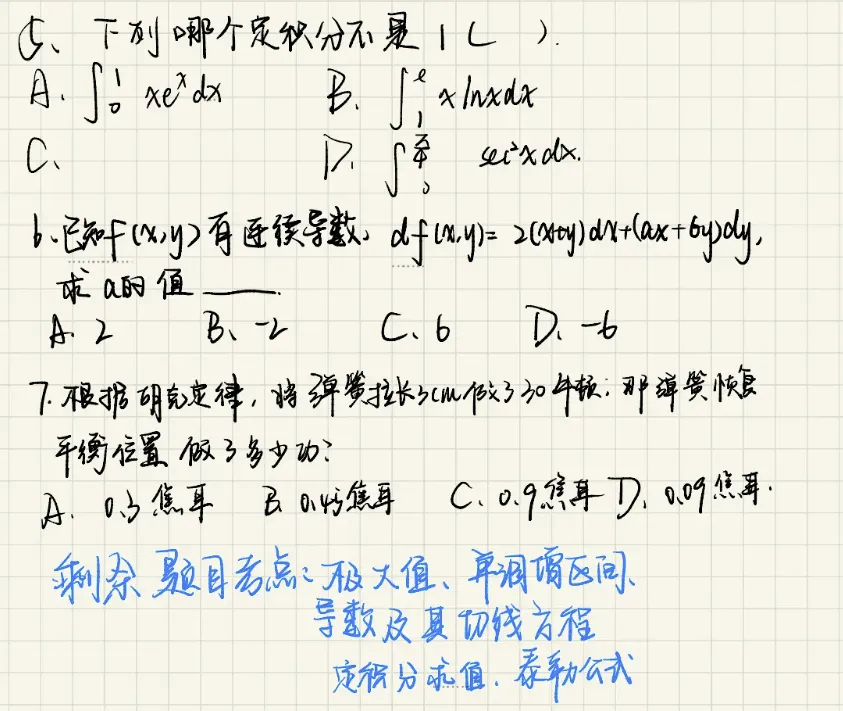 5、下列哪个定积分不是1( ).
A. ∫₀¹ xeˣdx B. ∫₁ᵉ xlnxdx
C. D. ∫₀^(π/4) sec²xdx.
6.已知f(x,y)有连续导数,df(x,y)=2(x+y)dx+(ax+6y)dy,
求a的值____.
A. 2 B、-2 C、6 D、-6
7.根据胡克定律,将弹簧拉长3cm做了30牛顿,那弹簧恢复
平衡位置做了多少功?
A. 0.3焦耳 B. 0.45焦耳 C、0.9焦耳 D、0.09焦耳.
剩余题目考点:极大值、单调增区间、
导数及其切线方程
定积分求值、泰勒公式